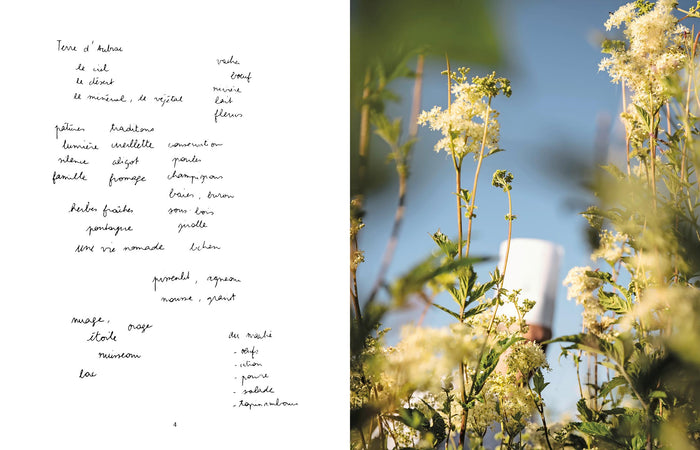 Terre d'Aubrac
le ciel
le désert
le minéral, le végétal
vache
boeuf
lait
fleurs
pâtures traditions
lumière cueillette conservation
silence aligot
famille fromage champignons
baies, buron
herbes fraîches sous bois
une vie nomade lichen
pissenlit, agneau
mousse, granit
nuage, orage
étoile
lac
du marché
- oeufs
- citron
- poivre
- salade
- topinambours
4